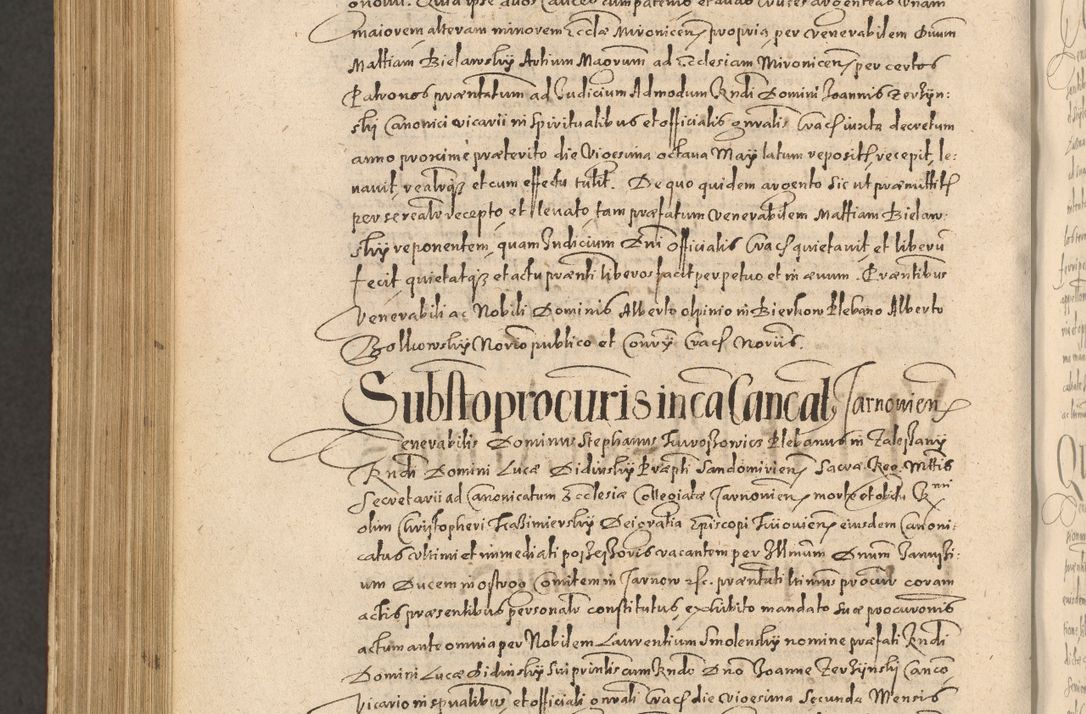 onovił. Qui ipse duos calices cum patenis et duas cruces argenteas unam
maiorem alteram minorem Ecclæ Mironicen propria per venerabilem Dnum
Mattiam Bielawskÿ Artium Maorum ad Ecclesiam Mironicen per certos
Patronos præntatum ad Iudicium Admodum Rndi Domini Joannis Zerzÿn:
skÿ Canonici vicarii in Spiritualibus et officialis gnralis Crac iuxta decretum
anno proxime præterito die Vigesima octava Maÿ latum reposit, recepit, le:
vavit, realrqz et cum effectu tulit. De quo quidem argento sic ut præmittit
per se realr recepto et levato, tam præfatum venerabilem Mattiam Bielaw:
skÿ reponentem, quam Indicium Dni officialis Crac quietavit et liberū
fecit quietatqz et actu prænti liberos facit perpetuo et in ævum. Præntibus
venerabili ac Nobili Dominis Alberto olpinio in Bierkow Plebano Alberto
Bolkowskÿ Norio publico et Conrÿ Crac Noriis.
Substoprocuris in ca Cancal Tarnovien
Venerabilis Dominus Stephanus Twoszowicz Plebanus in Zaleszany
Rndi Domini Lucæ Didinskÿ Præpti Sandomirien Sacræ Reg. Mttis
Secretarii ad Canonicatum Ecclesiæ Collegiatæ Tarnovien morte et obitu Rnni
olim Christopheri Kazimierskÿ Dei gratia Episcopi Kiiovien eiusdem Canoni:
catus ultimi et immediati possessoris vacantem per Illmum Dnum Janussi:
um Ducem in ostrog Comitem in Tarnow &c. præntati ltimus procur coram
actis præsentibus personalr constitutus, exhibito mandato suæ procuronis
actum ante omnia per Nobilem Laurentium Smolenskÿ nomine præfati Rndi
Domini Lucæ Didinskÿ sui prinlis cum Rndo Dno Joanne Zerzÿnskÿ Canco
Vicario in spualibus et officiali gnrali Crac die Vigesima Secunda Mensis